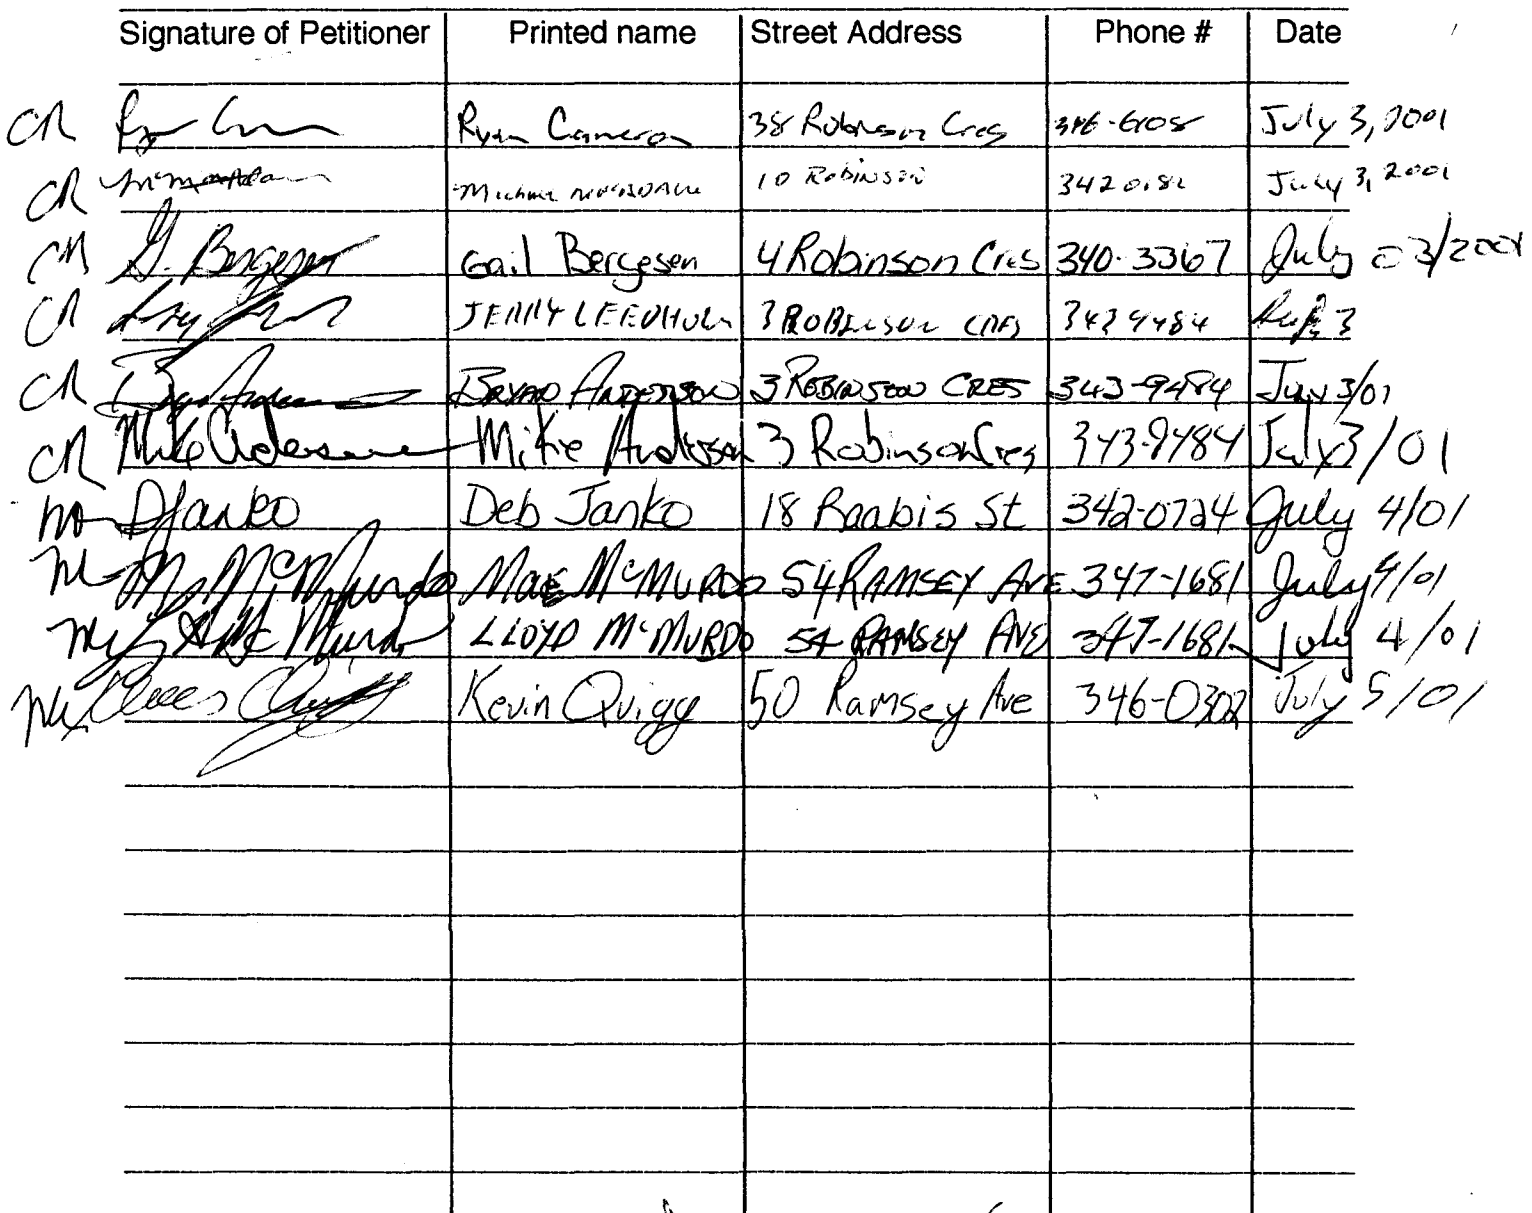 Signature of Petitioner Printed name Street Address Phone # Date
CR Ryan Cameron 38 Robinson Cres 346-6108 July 3, 2001
CR 10 Robinson July 3, 2001
CR G. Bergesen Gail Bergesen 4 Robinson Cres 340-3367 July 03/2001
CR JERRY 3 ROBINSON CRES 343 9484 3
CR Bryan Anderson BRYAN ANDERSON 3 ROBINSON CRES 343-9484 July 3/01
CR Mike Anderson Mike Anderson 3 Robinson Cres 343-9484 July 3/01
DJanko Deb Janko 18 St 342-0724 July 4/01
M McMurdo Mae McMURDO 54 RAMSEY AVE 347-1681 July 4/01
McMurdo LLOYD McMURDO 54 RAMSEY AVE 347-1681 July 4/01
Kevin Quigg 50 Ramsey Ave 346-0302 July 5/01